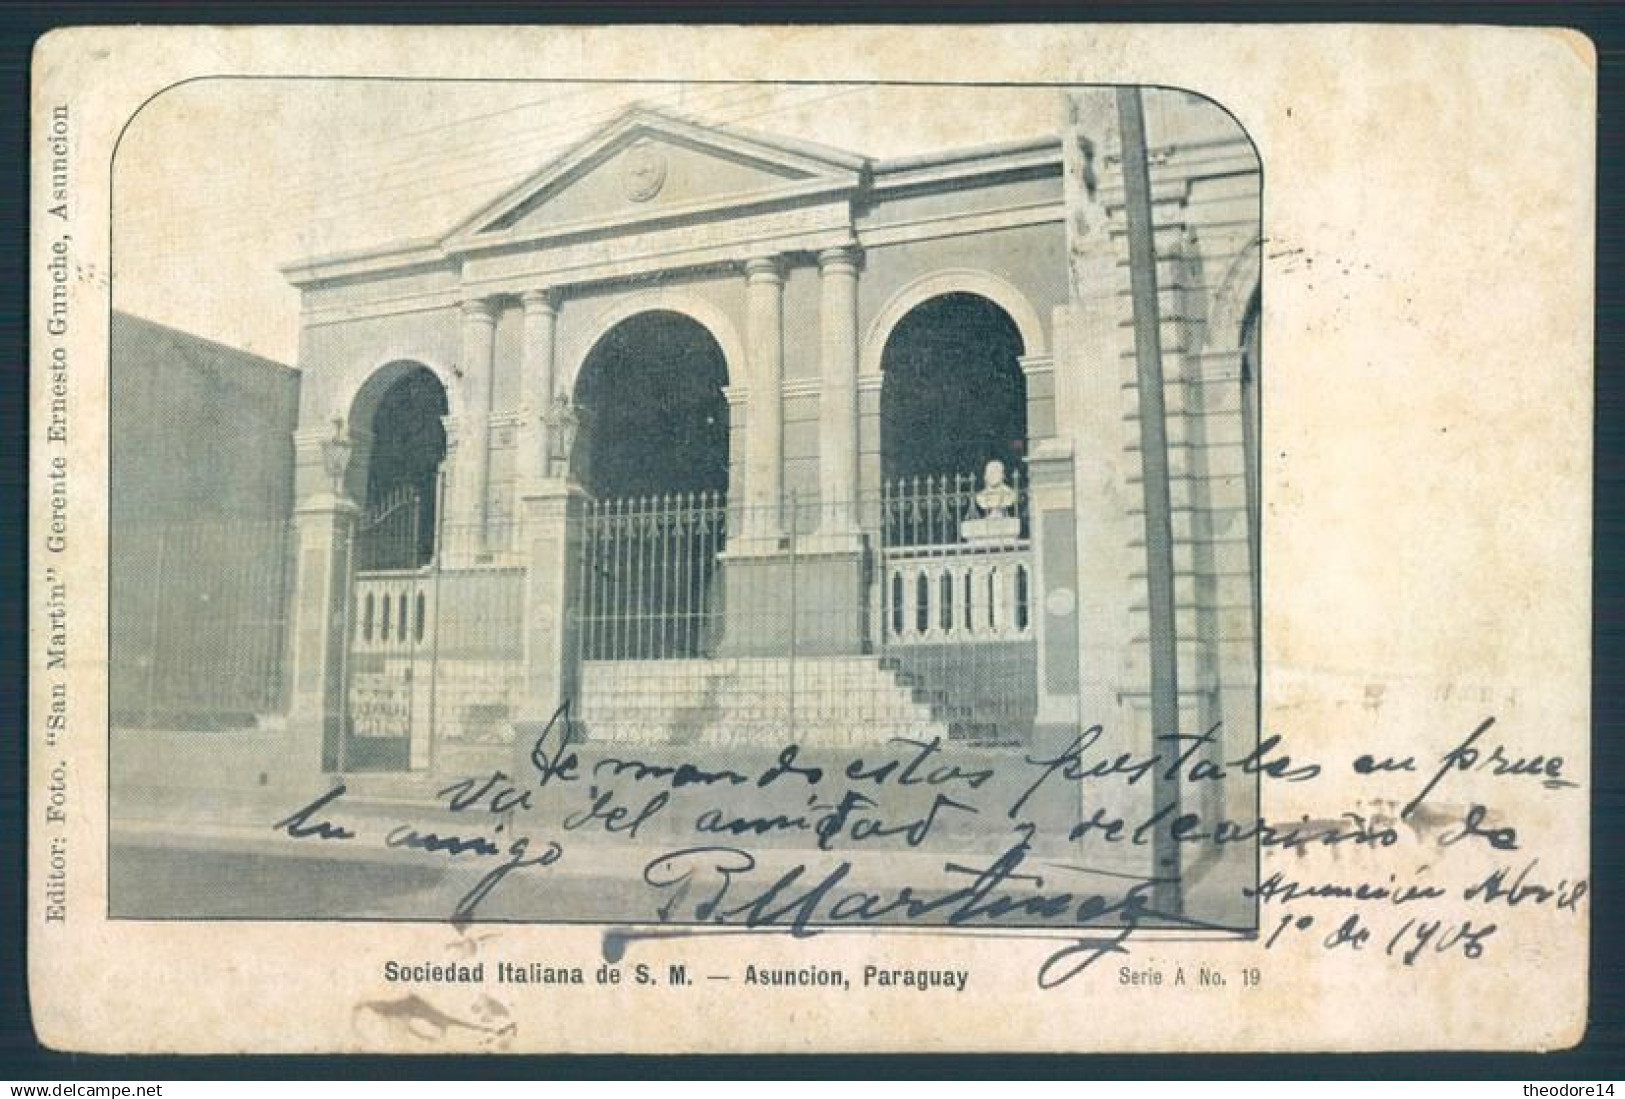 Editor: Foto. "San Martin" Gerente Ernesto Gunche, Asuncion
Te mando estas postales en prue
va del amistad y del cariño de
tu amigo
B. Martinez
Asuncion Abril
1º de 1906
Sociedad Italiana de S. M. — Asuncion, Paraguay
Serie A No. 19
www.delcampe.net
theodore14